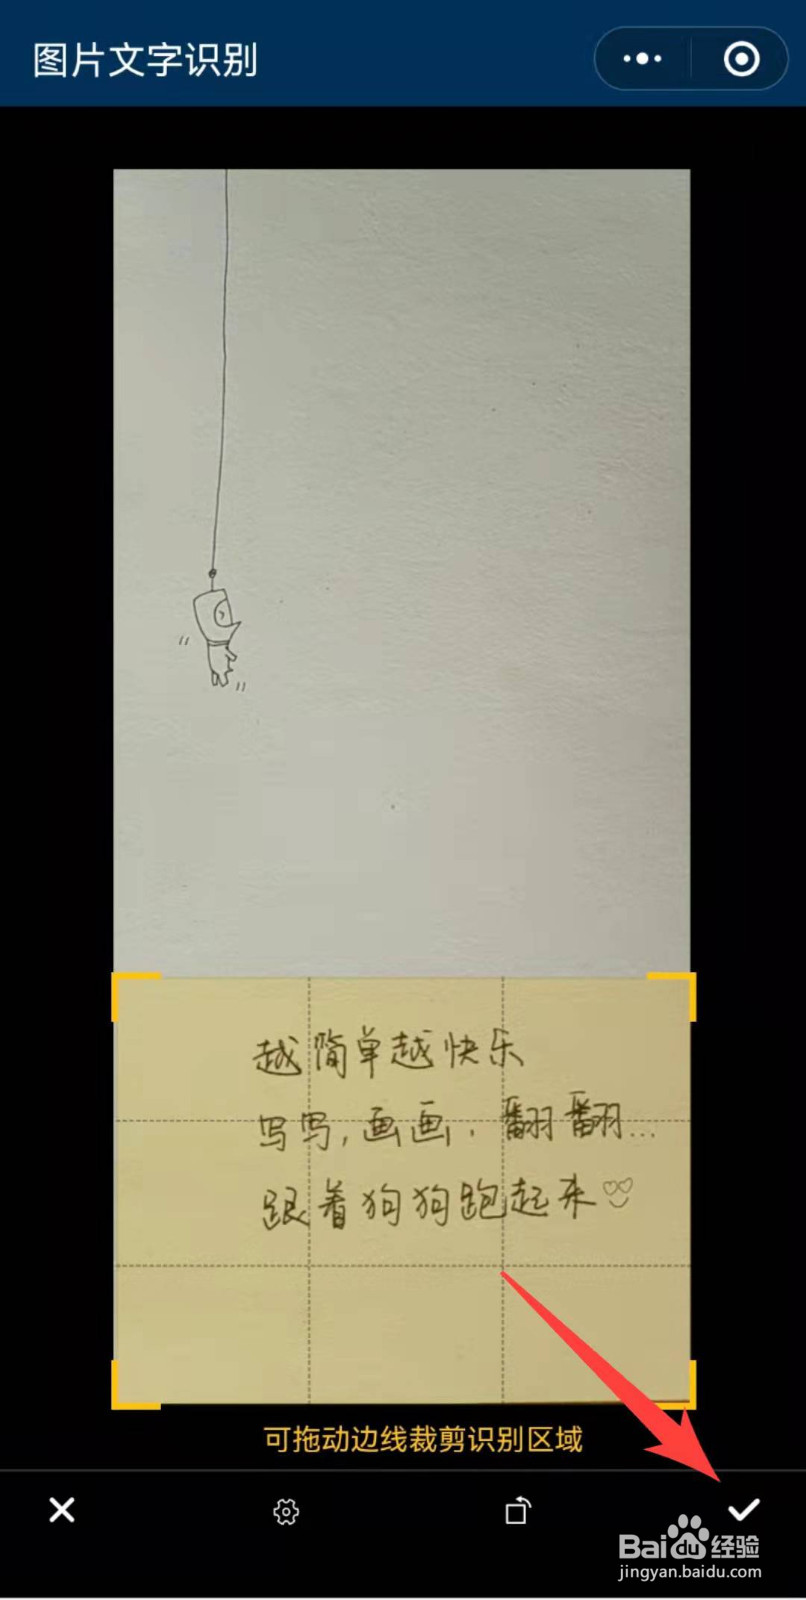 图片文字识别
越简单越快乐
写写,画画,翻翻...
跟着狗狗跑起来
可拖动边线裁剪识别区域
Baidu经验
jingyan.baidu.com